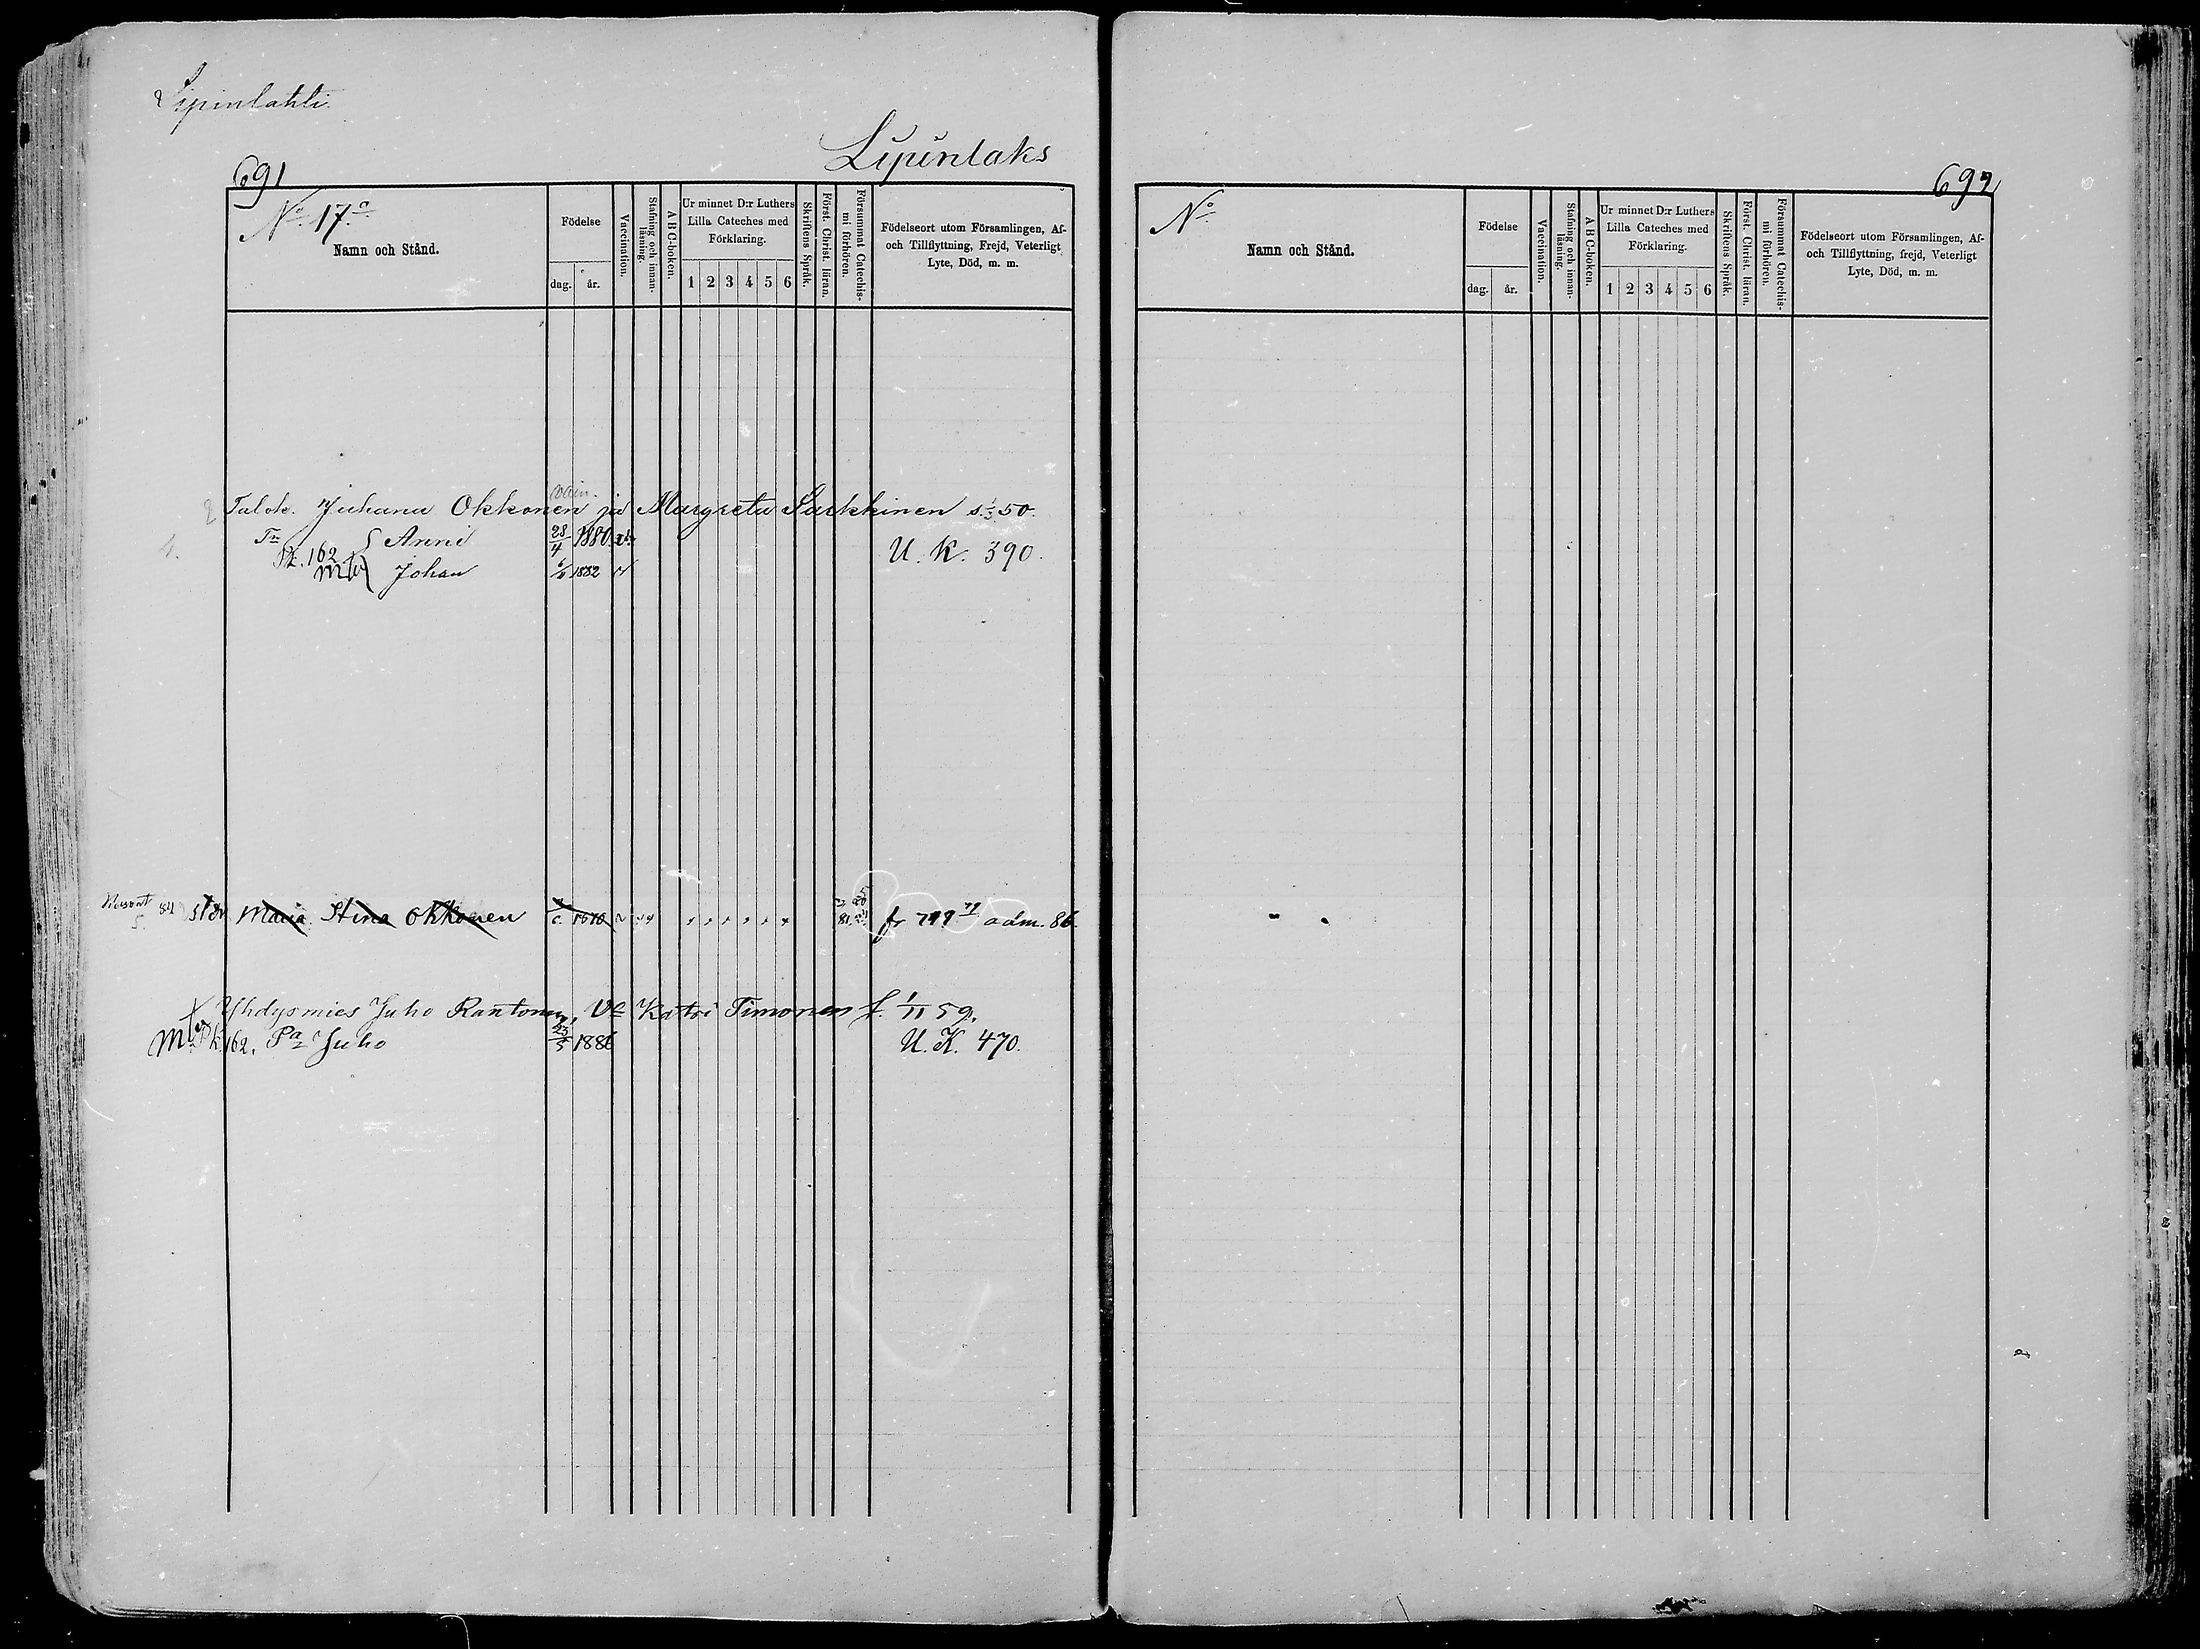 Sipinlahti
Sipinlaks
691
No 17
Namn och Stånd.
Födelse
dag.
år.
Vaccination.
Stafning och innan-
läsning.
A B C-boken.
Ur minnet D:r Luthers
Lilla Cateches med
Förklaring.
1 2 3 4 5 6
Skriftens Språk.
Först. Christ. läran.
Försummat Catechis-
mi förhören.
Födelseort utom Församlingen, Af-
och Tillflyttning, Frejd, Veterligt
Lyte, Död, m. m.
2 Talok. Juhana Okkonen ja Margreta Sarkkinen s. 1/3 50.
Anni 28/4 1880
U. K. 390.
162
Johan 1882
84 Maria Stina Okkonen
fr 79 adm. 86
Yhdysmies Juho Rantonen, Vo Katri Timonen f. 1/11 59.
162. Pa Juho 23/5 1886 U. K. 470.
692
No
Namn och Stånd.
Födelse
dag.
år.
Vaccination.
Stafning och innan-
läsning.
A B C-boken.
Ur minnet D:r Luthers
Lilla Cateches med
Förklaring.
1 2 3 4 5 6
Skriftens Språk.
Först. Christ. läran.
Försummat Catechis-
mi förhören.
Födelseort utom Församlingen, Af-
och Tillflyttning, frejd, Veterligt
Lyte, Död, m. m.